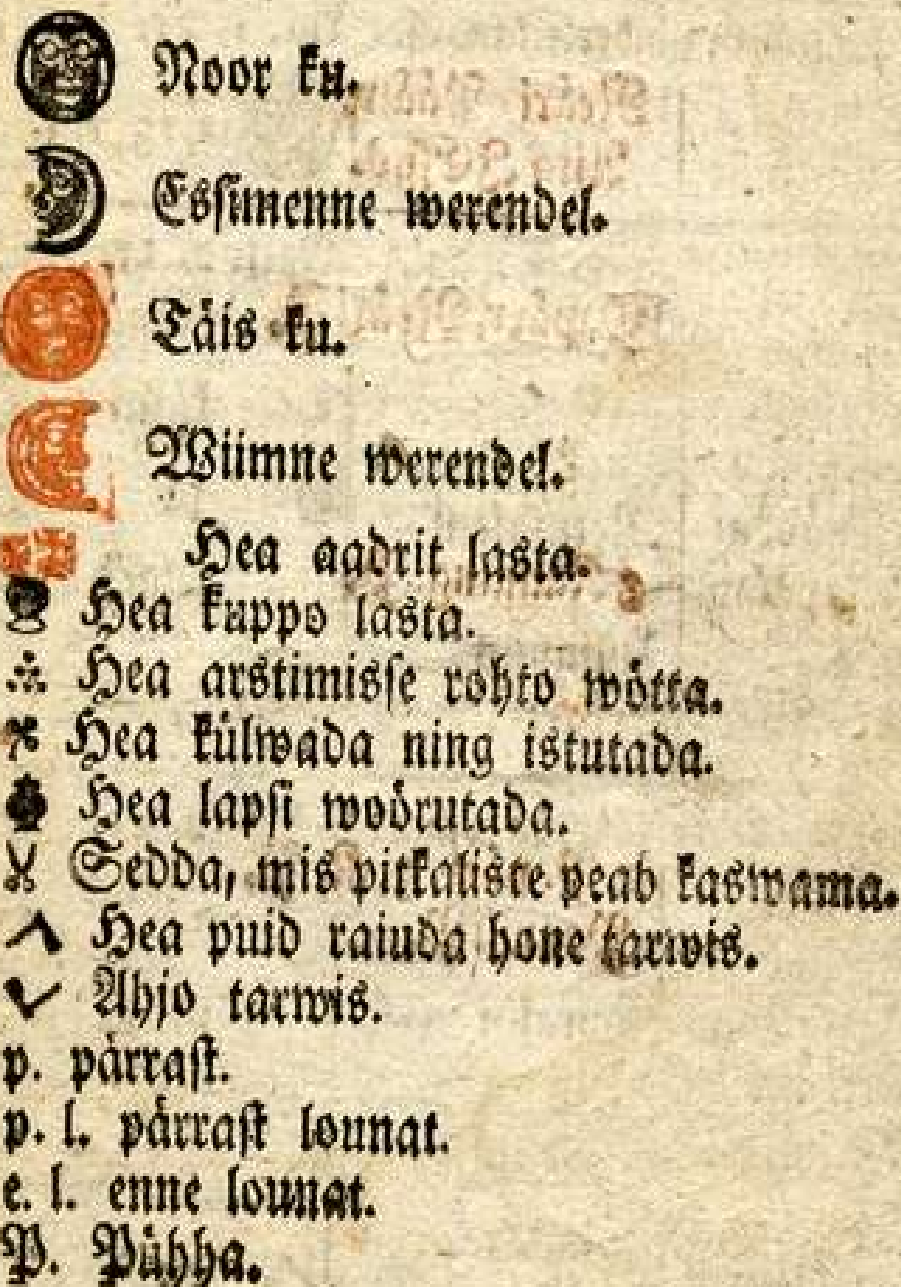 Noor ku.
Essimenne werendel.
Täis ku.
Wiimne werendel.
Hea aadrit lasta.
Hea kuppo lasta.
Hea arstimisse rohto wötta.
Hea külwada ning istutada.
Hea lapsi woörutada.
Sedda, mis pitkaliste peab kaswama.
Hea puid raiuda hone tarwis.
Ahjo tarwis.
p. pärrast.
p. l. pärrast lounat.
e. l. enne lounat.
P. Pühha.